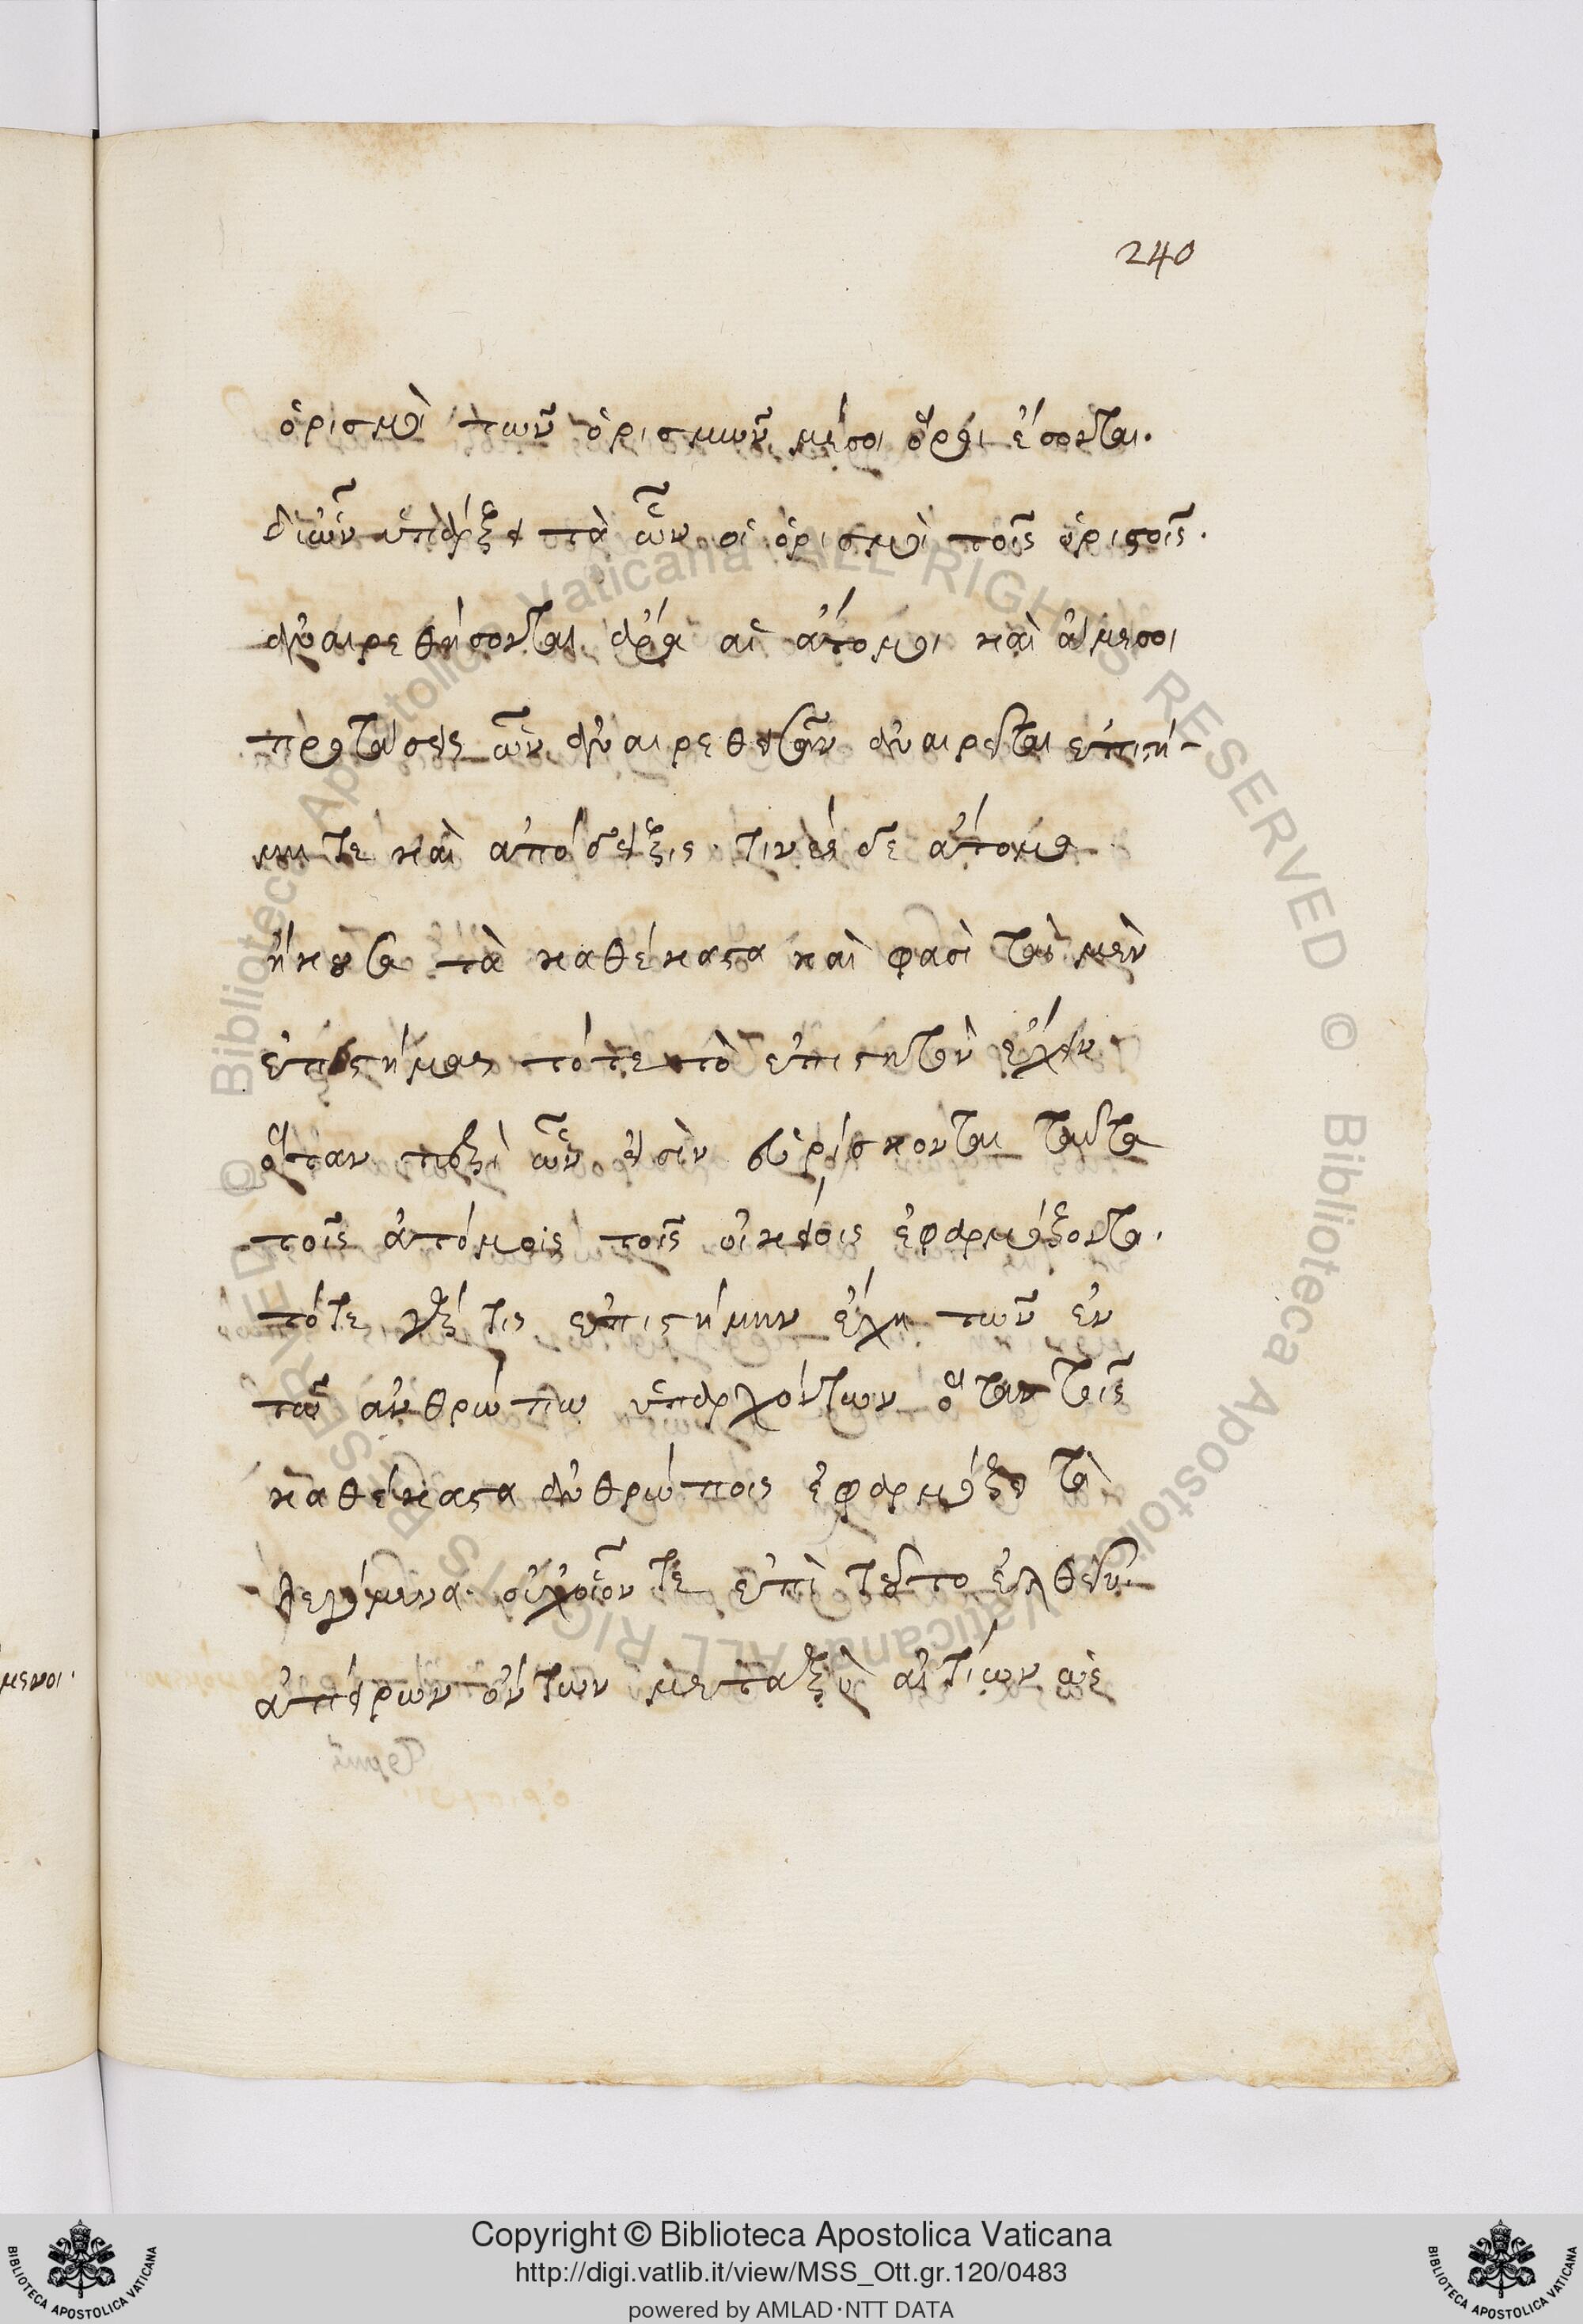 240
ὁρισμοὶ τῶν ὁρισμῶν μέσοι ὅροι ἔσονται.
δι' ὧν ὑπάρξει τὰ ὧν οἱ ὁρισμοὶ τοῖς ὁριστοῖς.
ἀναιρεθήσονται ἄρα αἱ ἄτομοι καὶ ἄμεσοι
προτάσεις ὧν ἀναιρεθεισῶν ἀναιρεῖται ἐπιστή-
μη τε καὶ ἀπόδειξις. τινὲς δὲ ἄτομα
ἤκουσαν τὰ καθέκαστα καὶ φασὶ τὰς μὲν
ἐπιστήμας τότε τὸ ἐπιστητὸν ἔχειν
ὅταν περὶ ὧν εἰσὶν εὑρίσκονται ταῦτα
τοῖς ἀτόμοις τοῖς οἰκείοις ἐφαρμόζοντα.
τότε γάρ τις ἐπιστήμην ἔχη τῶν ἐν
τῶ ἀνθρώπω ὑπαρχόντων ὅταν τοῖς
καθέκαστα ἀνθρώποις ἐφαρμόζει τὰ
λεγόμενα. οὐχ οἷόν τε ἐπὶ τοῦτο ἐλθεῖν
ἀπείρων ὄντων μεταξὺ αἰτίων ὡς
μενοι.
Copyright © Biblioteca Apostolica Vaticana
http://digi.vatlib.it/view/MSS_Ott.gr.120/0483
powered by AMLAD·NTT DATA
BIBLIOTECA APOSTOLICA VATICANA
BIBLIOTECA APOSTOLICA VATICANA
© Biblioteca Apostolica Vaticana ALL RIGHTS RESERVED
© Biblioteca Apostolica Vaticana ALL RIGHTS RESERVED